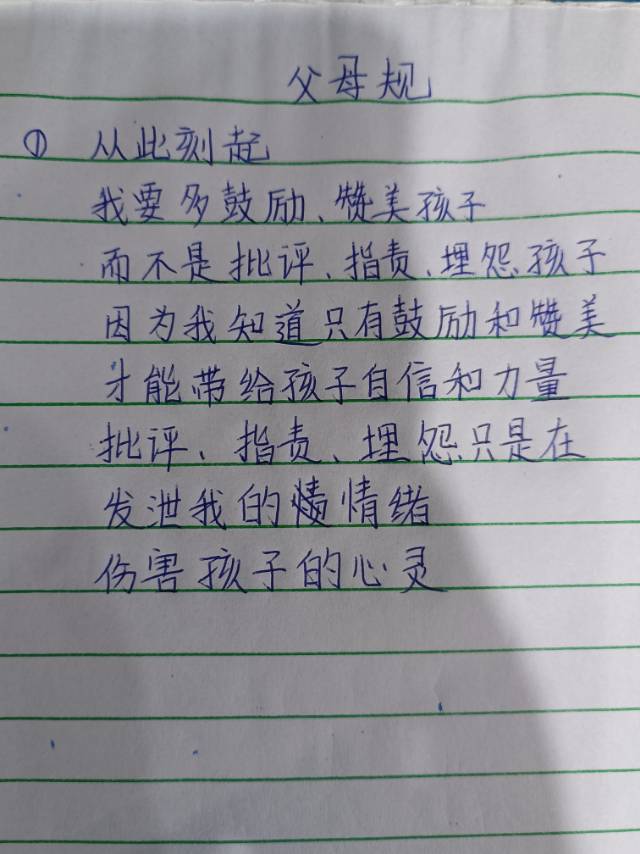 父母规
① 从此刻起
我要多鼓励、赞美孩子
而不是批评、指责、埋怨孩子
因为我知道只有鼓励和赞美
才能带给孩子自信和力量
批评、指责、埋怨只是在
发泄我的情绪
伤害孩子的心灵